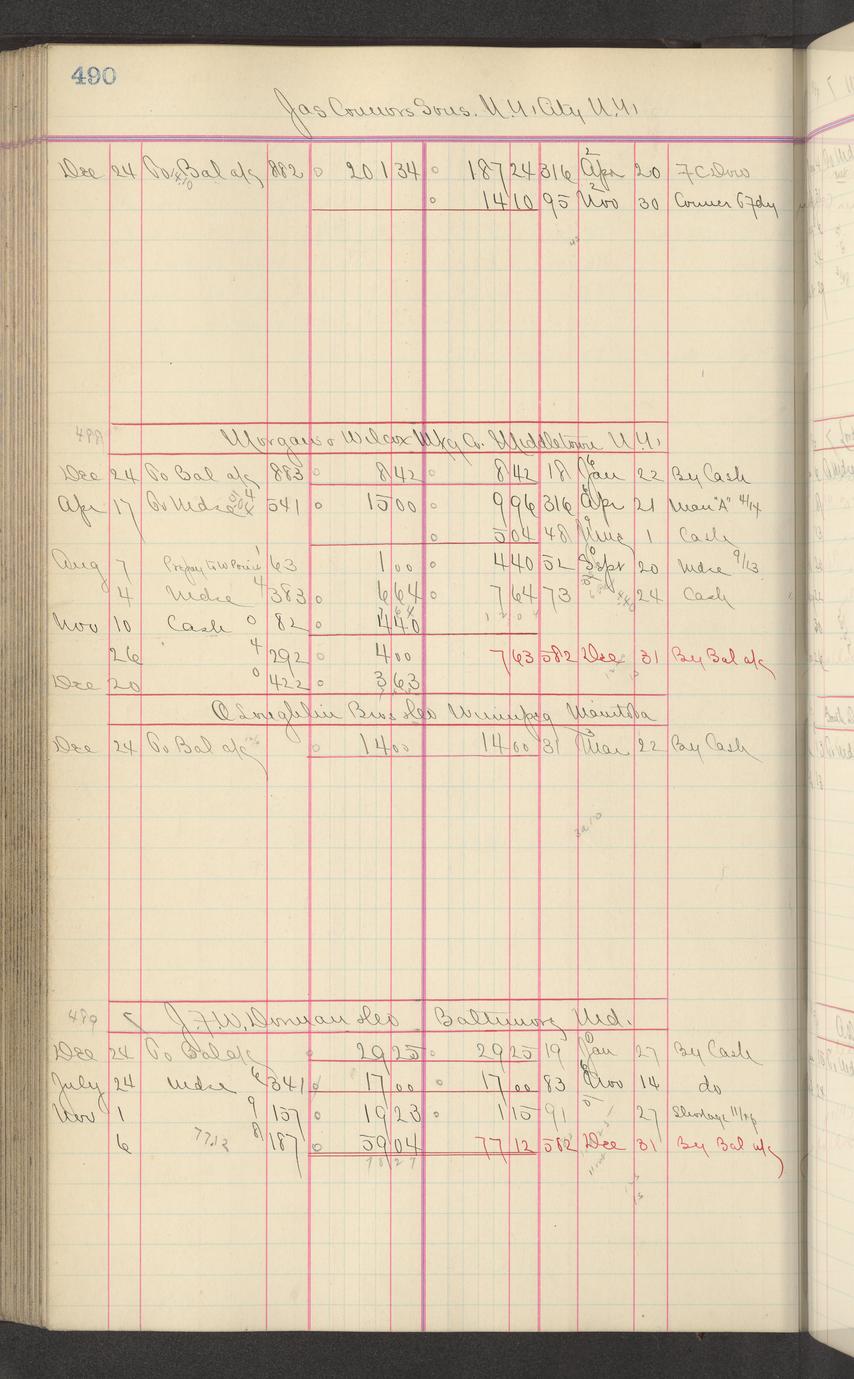 490
Jas Connors Sons. N.Y. City N.Y.
Dec 24 To Bal a/c 882 201 34 187 24 316 Apr 20
14 10 95 Nov 30
488
Morgans & Wilcox Mfg Co. Middletown N.Y.
Dec 24 To Bal a/c 883 8 42 8 42 18 Jan 22 By Cash
Apr 17 To Mdse 4 541 15 00 9 96 316 Apr 21 Man "A" 4/14
5 04 48 Aug 1 Cash
Aug 7 1 63 1 00 4 40 52 Sept 20 Mdse 9/13
4 Mdse 4 383 6 64 7 64 73 24 Cash
Nov 10 Cash 0 82 4 40
26 4 292 4 00 7 63 582 Dec 31 By Bal a/c
Dec 20 0 422 3 63
O'Loughlin Bros & Co Winnipeg Manitoba
Dec 24 To Bal a/c 14 00 14 00 31 Mar 22 By Cash
489
J.F.W. Dorman & Co Baltimore Md.
Dec 24 To Bal a/c 29 25 29 25 19 Jan 27 By Cash
July 24 Mdse 6 341 17 00 17 00 83 Nov 14 do
Nov 1 9 157 19 23 1 15 91 27 Shortage
6 77.12 8 187 59 04 77 12 582 Dec 31 By Bal a/c
78 27